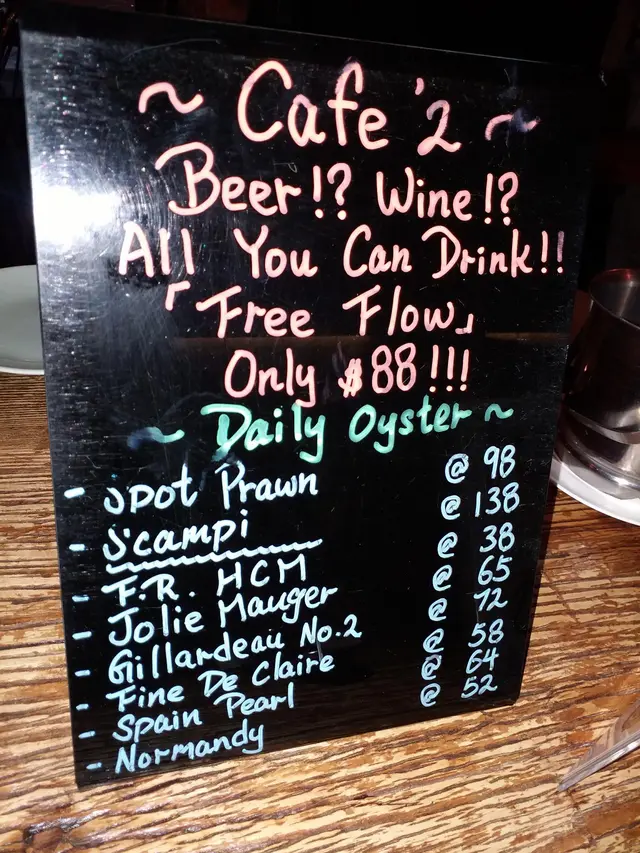 ~ Cafe '2 ~
Beer!? Wine!?
All You Can Drink!!
「Free Flow」
Only $88!!!
~ Daily Oyster ~
- Spot Prawn @ 98
- Scampi @ 138
- F.R. HCM @ 38
- Jolie Mauger @ 65
- Gillardeau No.2 @ 72
- Fine De Claire @ 58
- Spain Pearl @ 64
- Normandy @ 52